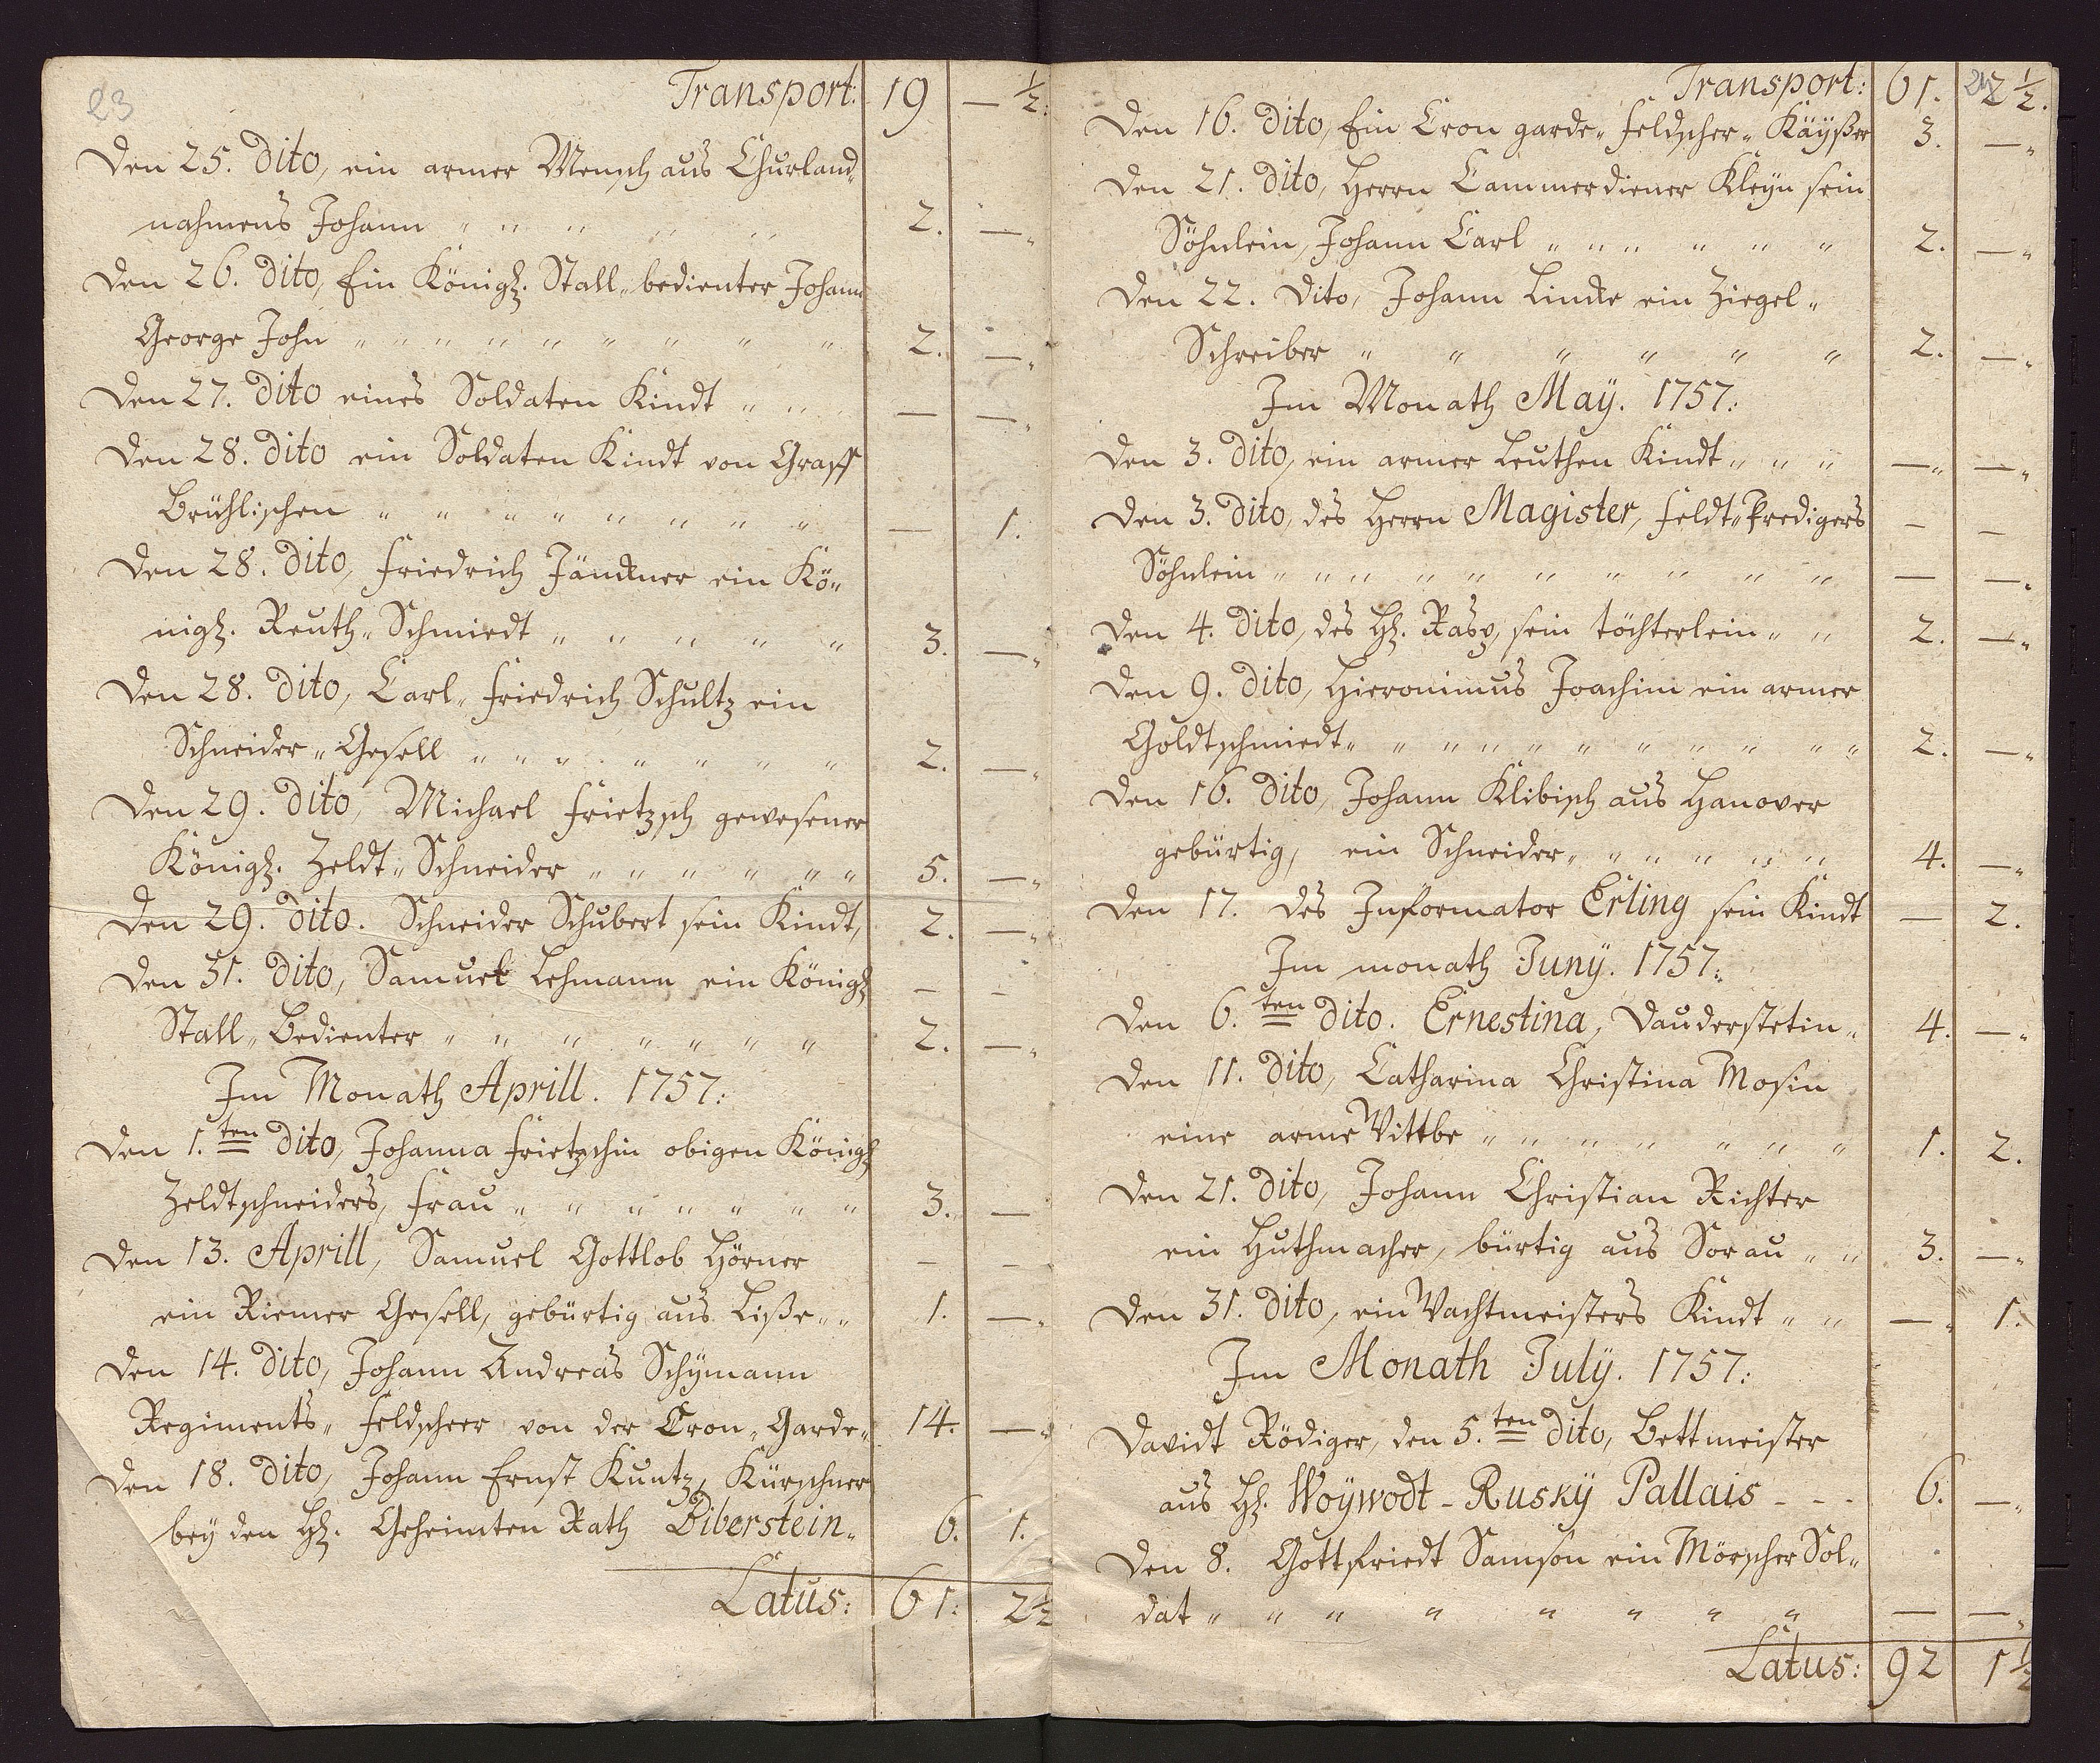 23
Transport: 19 — ½:
Den 25. dito, ein armer Mensch aus Churland„
nahmens Johann „ „ „ „ „ 2. —„
Den 26. dito, Ein Königl. Stall„bedienter Johann
George John „ „ „ „ „ „ „ „ „ 2. —„
Den 27. dito eines Soldaten Kindt „ „ — —„
Den 28. dito ein Soldaten Kindt von Graff
Brühlischen „ „ „ „ „ „ „ „ — 1.
Den 28. dito, Friedrich Jändtner ein Kö„
nigl. Reuth„Schmiedt „ „ „ „ „ 3. —„
Den 28. dito, Carl„Friedrich Schultz ein
Schneider„Gesell „ „ „ „ „ „ „ 2. —„
Den 29. dito, Michael Frietzsch gewesener
Königl. Zeldt„Schneider „ „ „ „ „ „ 5. —„
Den 29. dito. Schneider Schubert sein Kindt, 2. —„
Den 31. dito, Samuel Lehmann ein Königl. – –
Stall„Bedienter „ „ „ „ „ „ „ 2. —„
Im Monath Aprill. 1757:
Den 1.ten dito, Johanna Frietzschin obigen Königl.
Zeldtschneiders, Frau „ „ „ „ „ „ „ 3. —
Den 13. Aprill, Samuel Gottlob Hörner – –
ein Riemer Gesell, gebürtig aus Liße„ „ 1. —„
Den 14. dito, Johann Andreas Schÿmann
Regiments„Feldscheer von der Cron„Garde„ 14. —„
Den 18. dito, Johann Ernst Kuntz, Kürschner
beÿ den H. Geheimten Rath Biberstein„ 6. 1.
Latus: 61: 2½
Transport: 61. 2½.
Den 16. dito, Ein Cron garde„Feldscher„Käÿßer 3. —„
Den 21. dito, Herrn Cammerdiener Kleÿn sein
Söhnlein, Johann Carl „ „ „ „ „ „ 2. —„
Den 22. Dito, Johann Lindte ein Ziegel„
Schreiber „ „ „ „ „ „ 2. —„
Im Monath Maÿ. 1757:
Den 3. dito, ein armer Leuthen Kindt „ „ „ —„ —„
Den 3. dito, des Herrn Magister, Feldt„Predigers – –
Söhnlein „ „ „ „ „ „ „ „ „ „ — —„
Den 4. dito, des H. Rasp, sein töchterlein „ „ 2. —„
Den 9. dito, Hieronimus Joachim ein armer
Goldtschmiedt„ „ „ „ „ „ „ „ „ „ „ 2. —„
Den 16. dito, Johann Klibisch aus Hanover
gebürtig, ein Schneider„ „ „ „ „ „ 4. —„
Den 17. des Informator Erling sein Kindt — 2.
Im monath Junÿ. 1757:
Den 6.ten dito. Ernestina, Dauderstetin„ 4. —„
Den 11. dito, Catharina Christina Mosin
eine arme Wittbe „ „ „ „ „ „ „ 1. 2.
Den 21. dito, Johann Christian Richter
ein Huthmacher, bürtig aus Sorau „ „ 3. —„
Den 31. dito, ein Wachtmeisters Kindt „ „ —„ 1.
Im Monath Julÿ. 1757:
Davidt Rödiger, den 5.ten dito, Bettmeister
aus H. Woÿwodt - Ruskÿ Pallais - - - 6. —„
Den 8. Gottfriedt Samson ein Mörscher Sol„
dat „ „ „ „ „ „ „ „ — —„
Latus: 92 1½